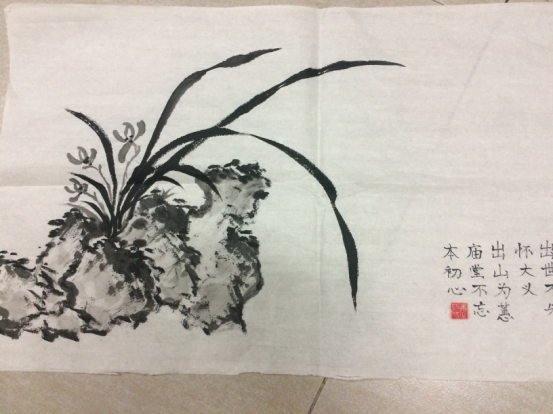 出世不
怀大义
出山为蕙
庙堂不忘
本初心